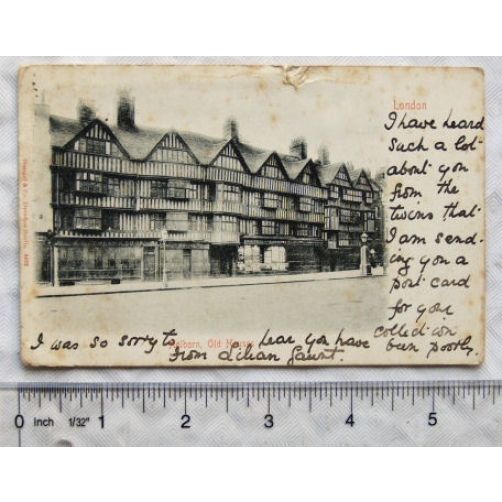 London
I have heard
such a lot
about you
from the
twins that
I am send-
ing you a
post card
for your
collection
I was so sorry to hear you have been poorly.
Holborn, Old Houses
From
0 Inch 1/32" 1 2 3 4 5